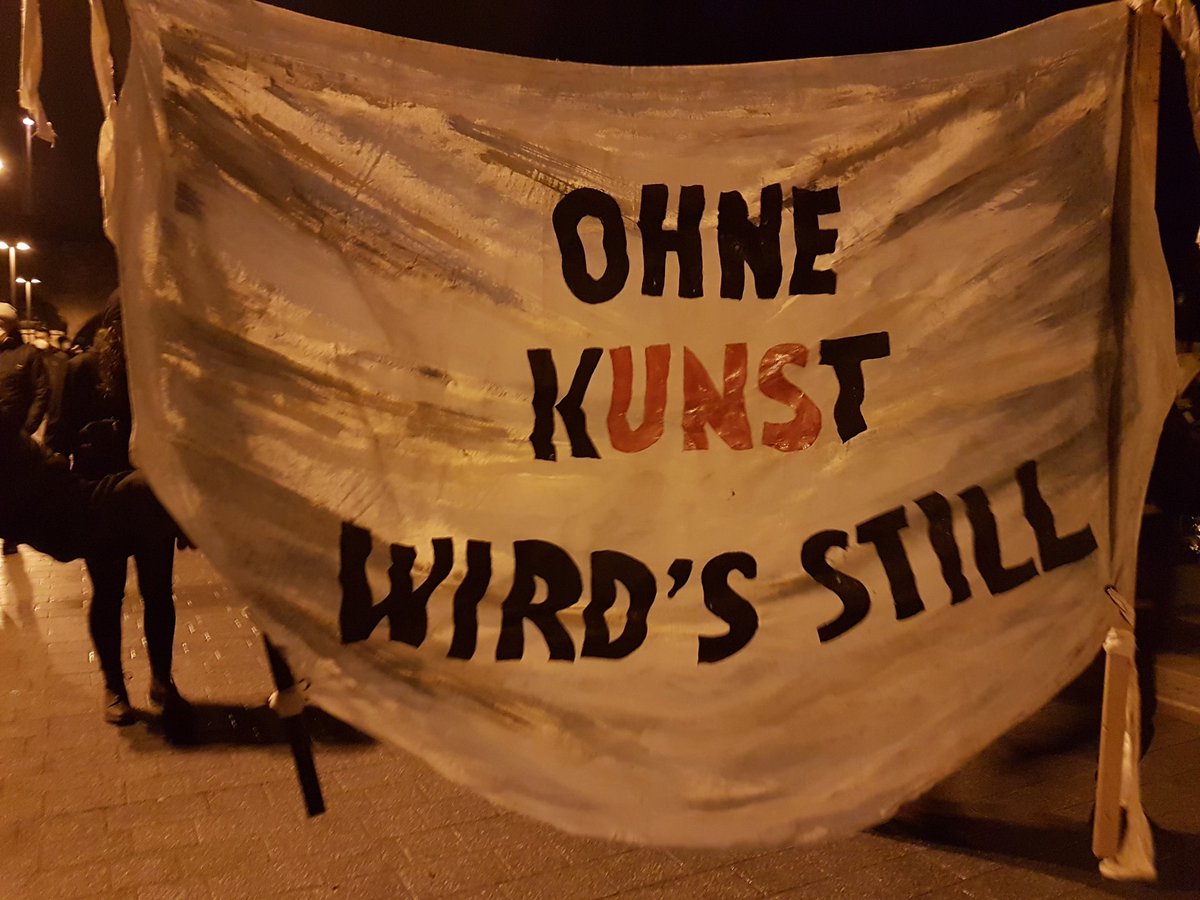 OHNE
KUNST
WIRD'S STILL